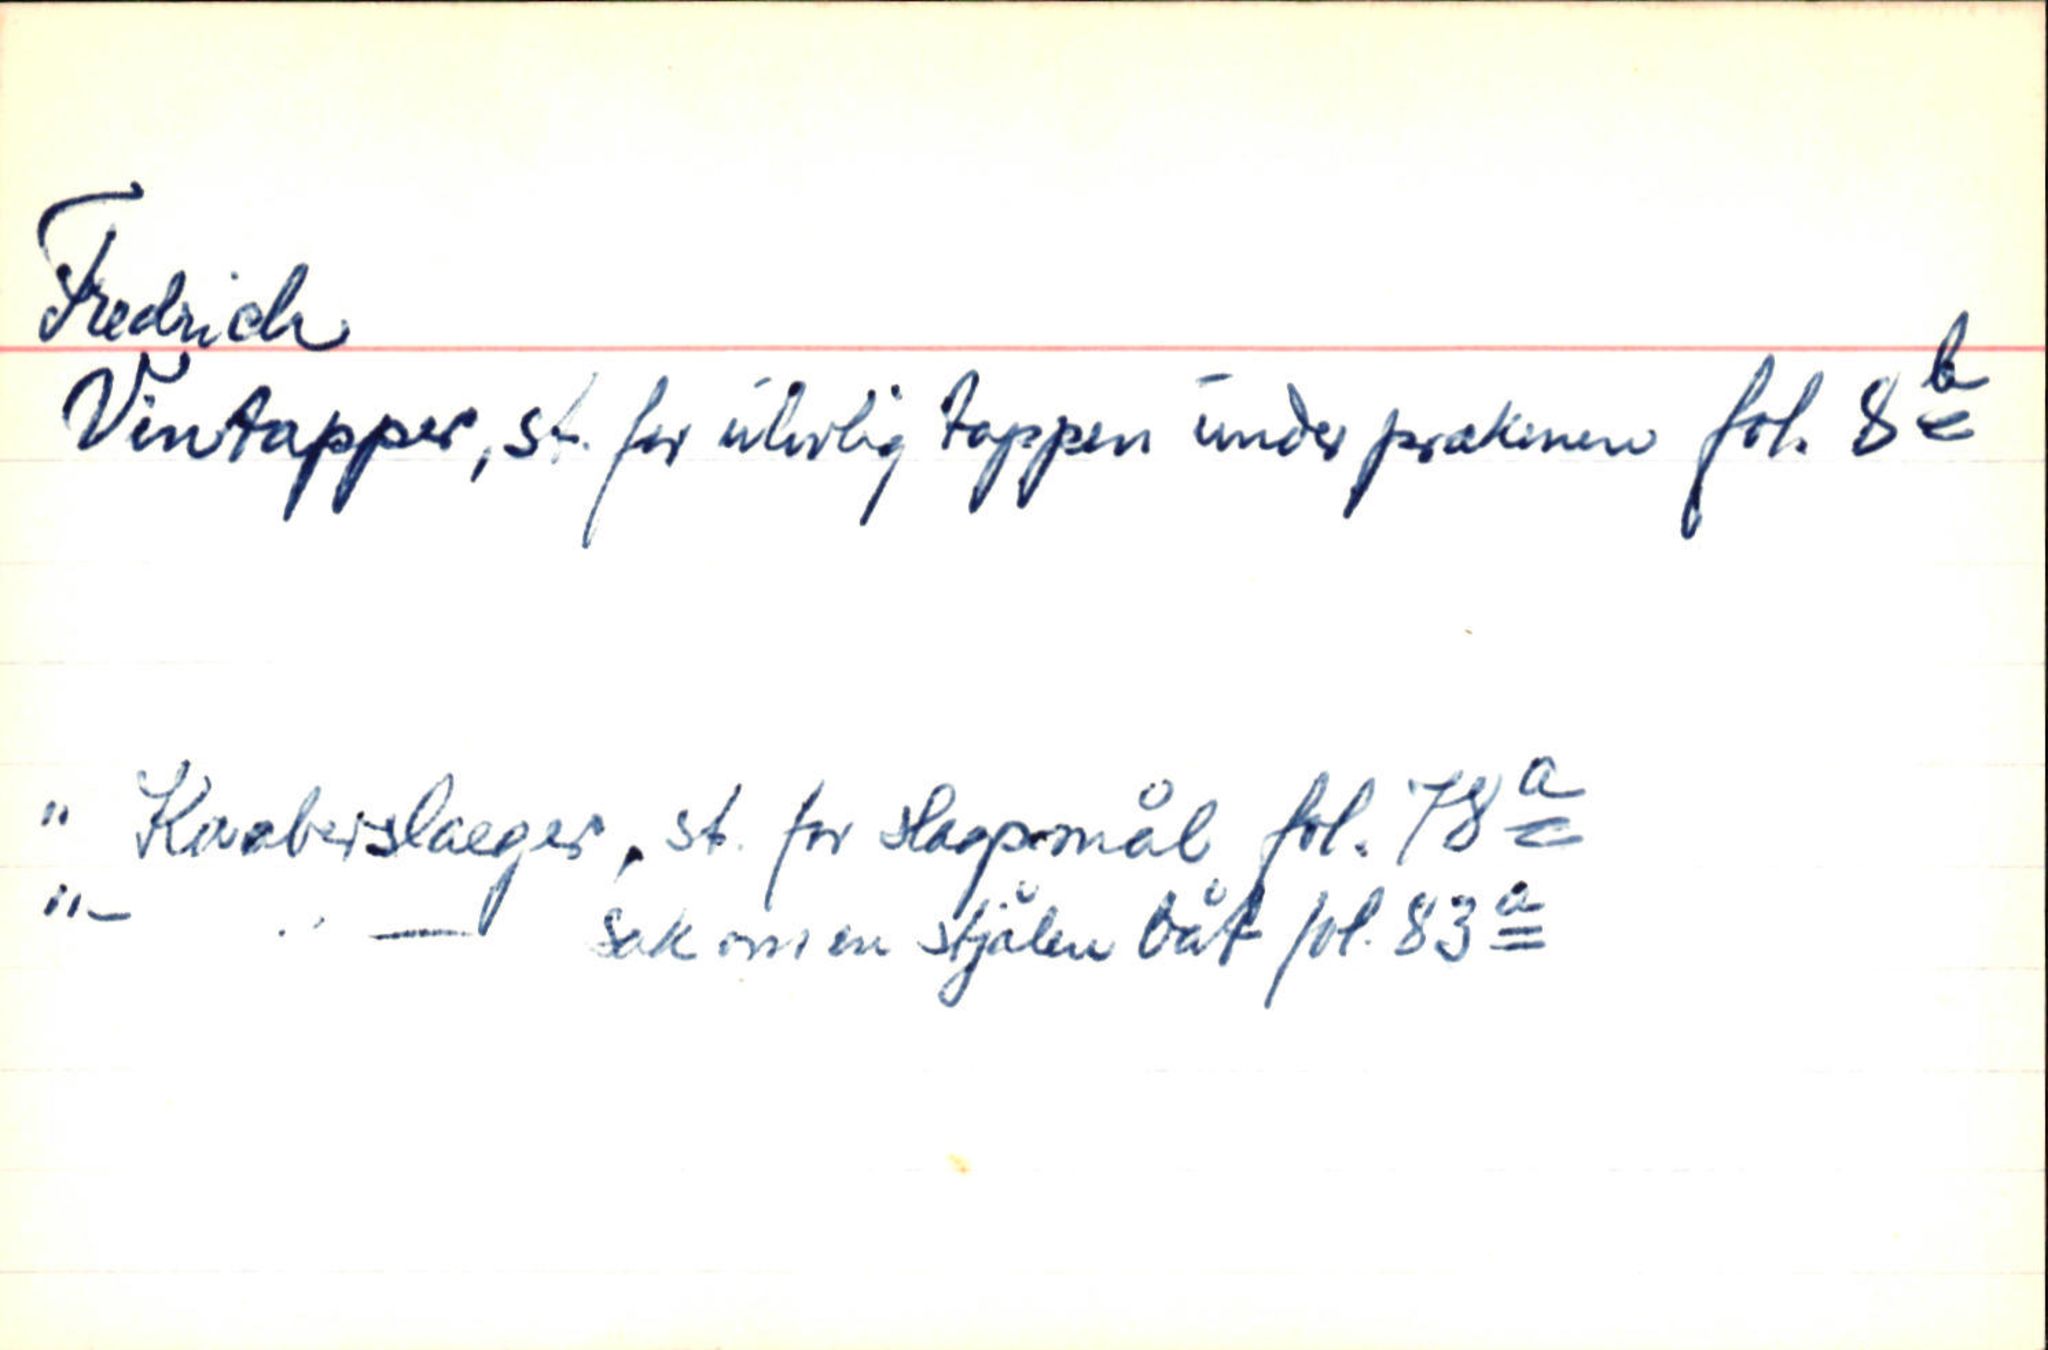 Fredrich
Vintapper, st. for ulovlig tappen under prækenen fol. 8b
" Kaaberslaeger, st. for slagsmål fol. 78a
"- " — sak om en stjålen båt fol. 83a